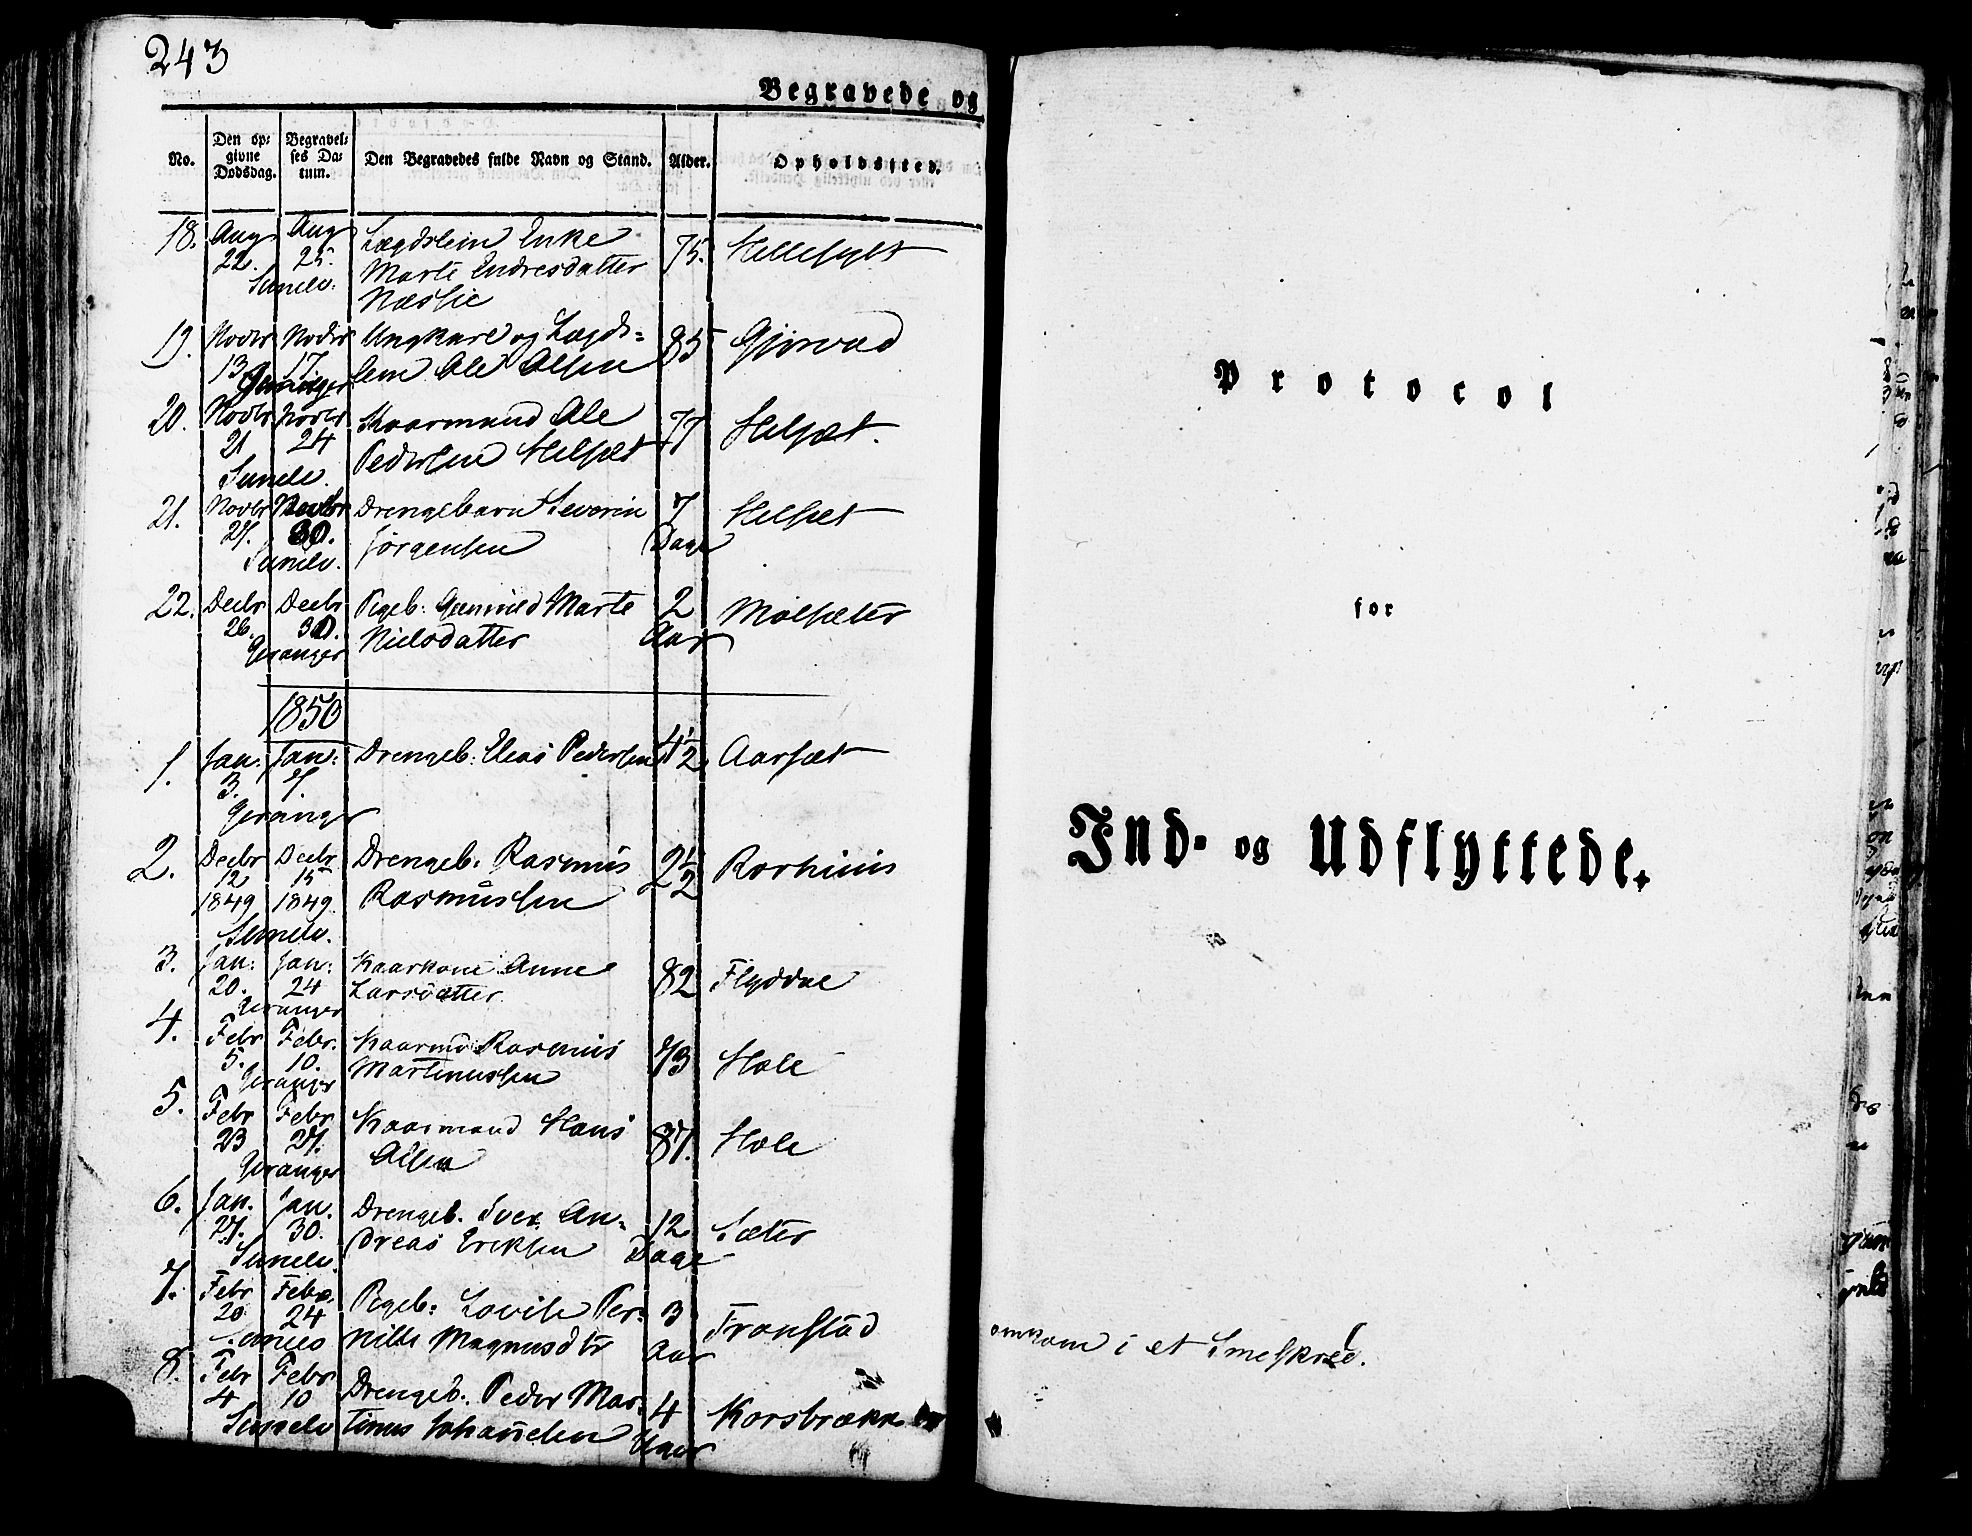 243
Begravede og
No. Den opgivne Dødsdag. Begravelses Datum. Den Begravedes fulde Navn og Stand. Alder. Opholdssted.
18. Aug Aug Lægdslem Enke 75. Hellesylt
22. 25. Marte Endresdatter
Sunelv. Næssie
19. Novbr Novbr Ungkarl og Lægds= 85 Gjørvad
13 17 lem Ole Olsen
Geranger
20. Novbr Novbr Kaarmand Ole 77 Helsæt.
21 24 Pedersen Helsæt
Sunelv.
21. Novbr Novbr Drengebarn Severin 7 Helsæt
27. 30. Jørgensen Dage
Sunelv.
22. Decbr Decbr Pigeb: Gunnild Marte 2 Molsæter
26. 30. Nielsdatter Aar
Geranger
1850
1. Jan: Jan: Drengeb: Elias Pedersen 4 1/2 Aarsæt
3. 7.
Geranger
2. Decbr Decbr Drengeb: Rasmus 2 1/2 Rorhuus
12 15 Rasmussen
1849 1849.
Sunelv.
3. Jan: Jan: Kaarkone Anne 82 Flyddal
20. 24 Larsdatter
Geranger
4. Febr Febr. Kaarmd Rasmus 73 Hole
5. 10. Martinussen
Geranger
5. Febr Febr Kaarmand Hans 87. Hole
23 27. Olsen
Geranger
6. Jan. Jan. Drengeb. Iver An= 12 Sæter
27. 30. dreas Eriksen Dage
Sunelv.
7. Febr Febr. Pigeb: Lovise Per= 3 Fronstad
20 24 nille Magnusdtr Aar
8. Febr Febr Drengeb. Peder Mar= 4 Korsbrække
4 10 tinus Johansen Uger
Sunelv
Protocol
for
Ind- og Udflyttede.
omkom i et Sneeskred.